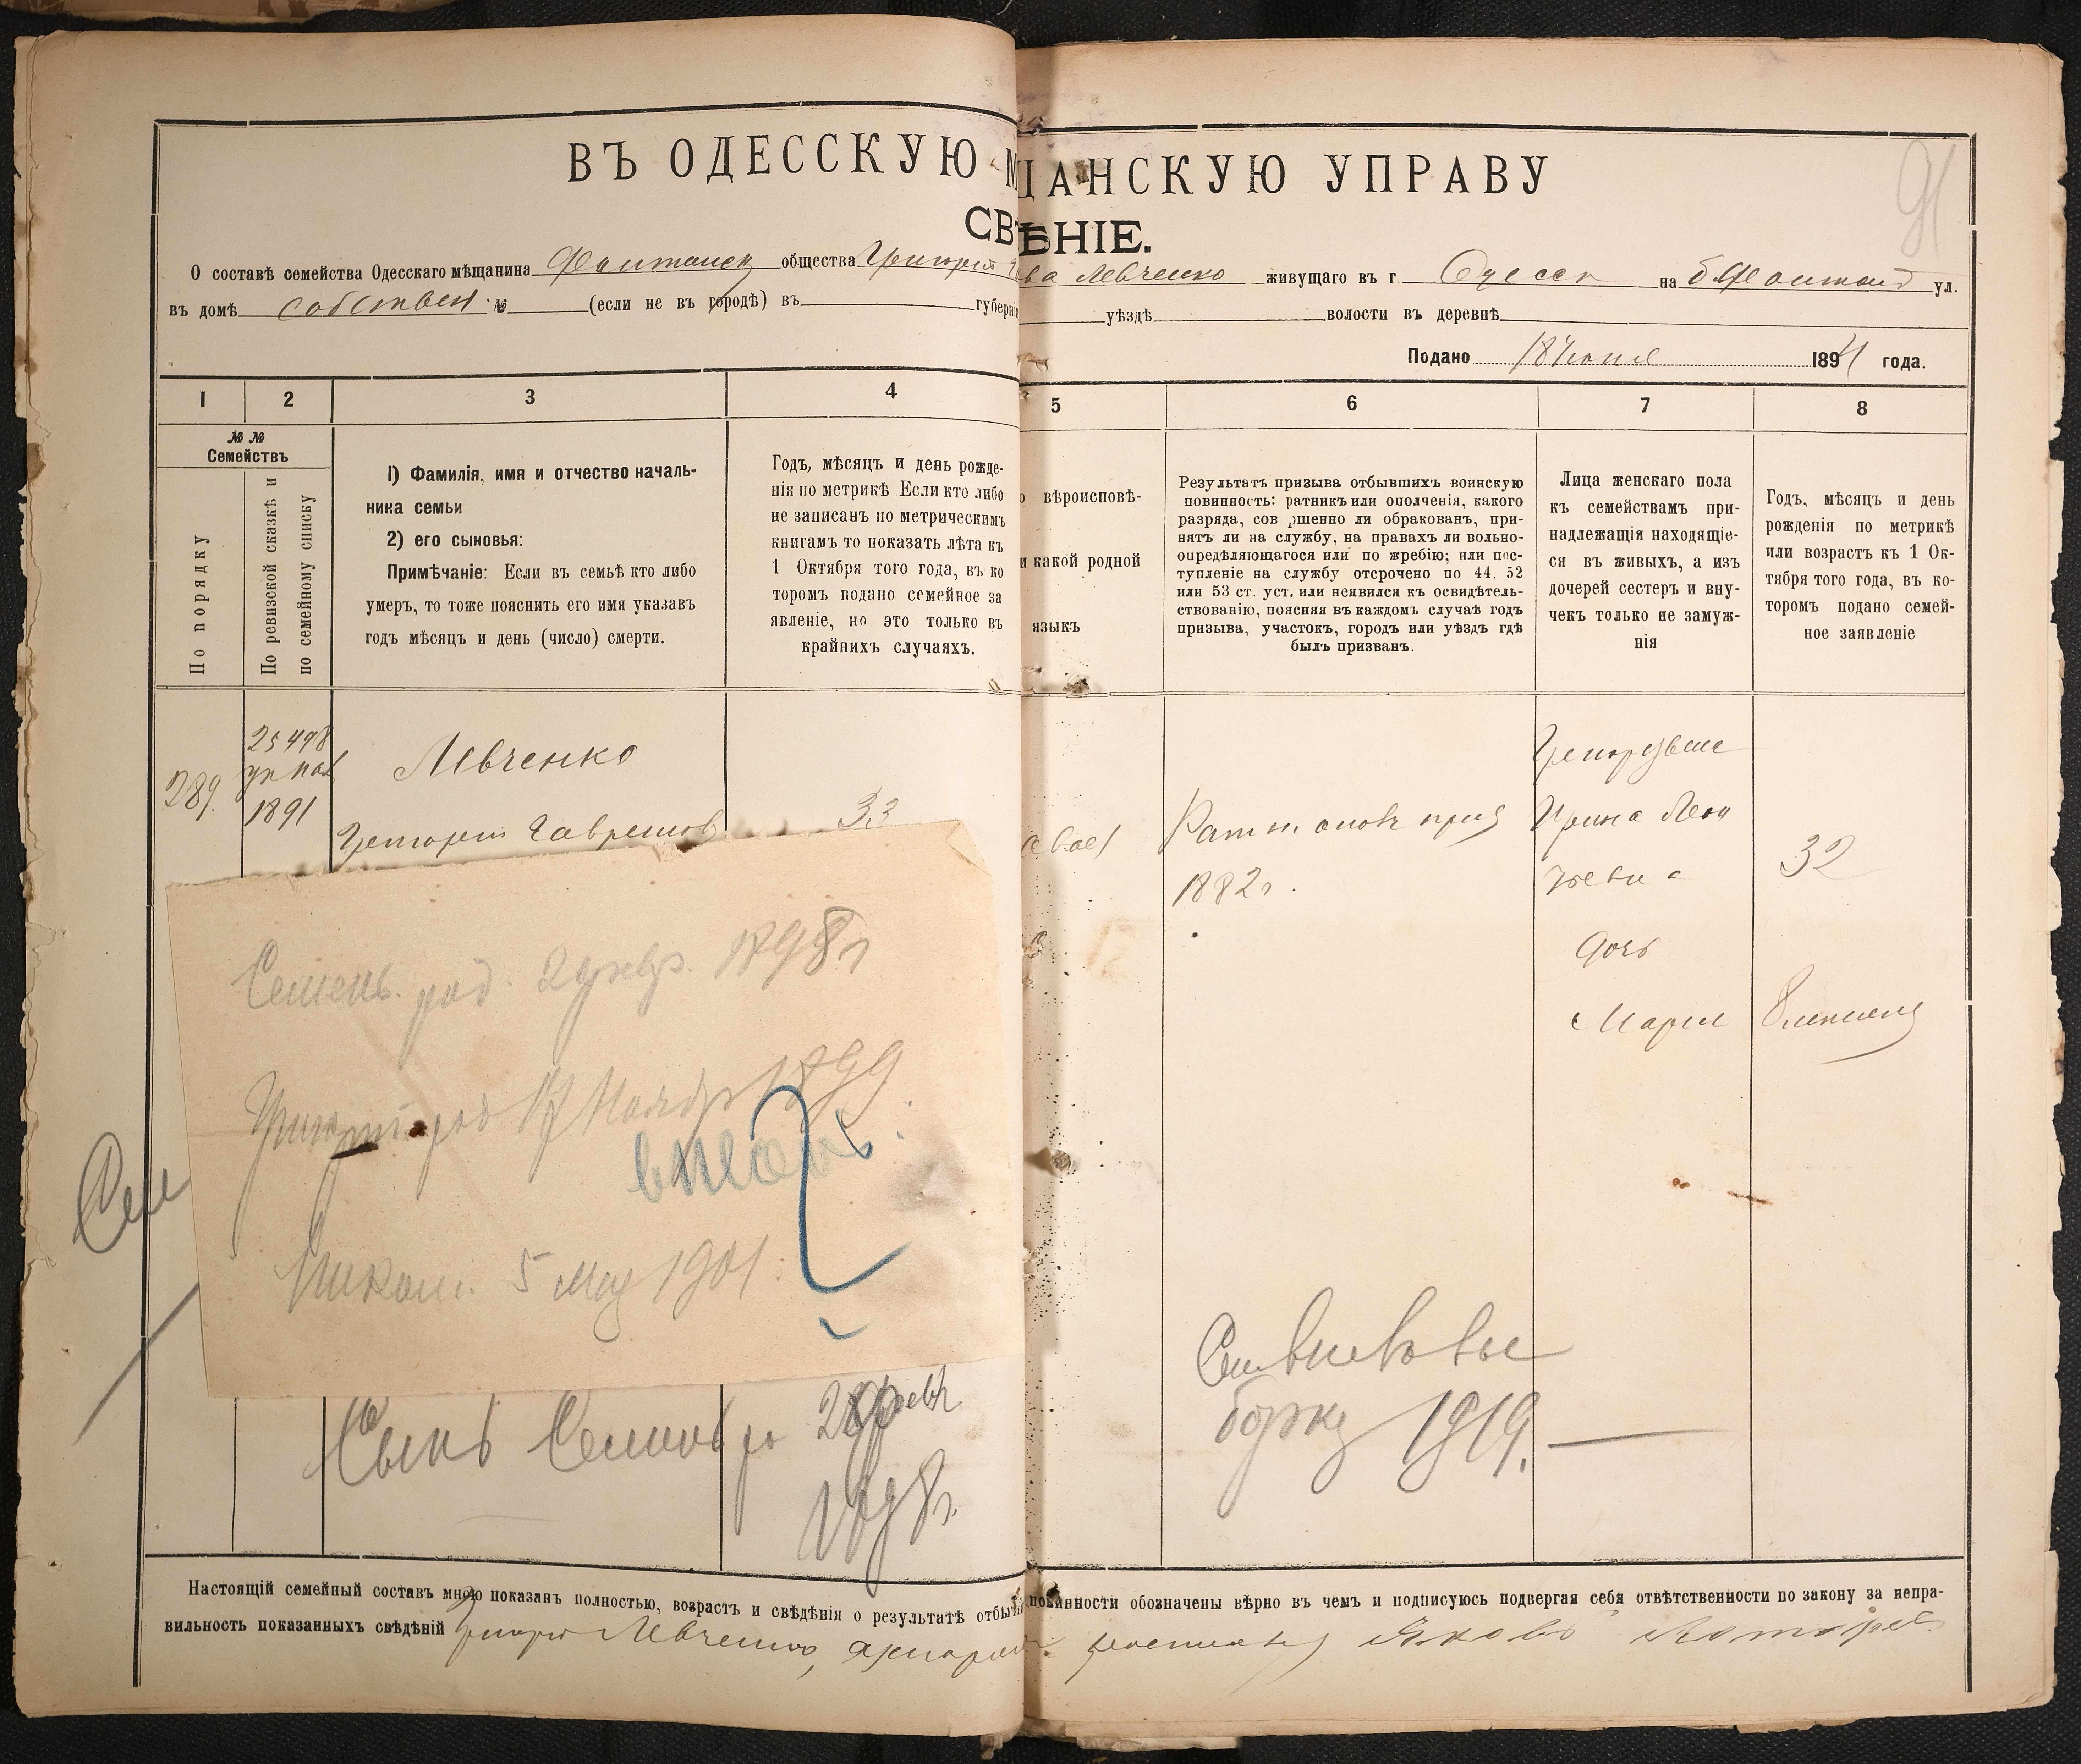 ВЪ ОДЕССКУЮ М ЩАНСКУЮ УПРАВУ
91
СВ ѢНІЕ.
О составѣ семейства Одесскаго мѣщанина Фонтанск общества Григорія ва Левченко живущаго въ г. Одессѣ на б. Фонтанѣ ул.
въ домѣ собствен. № (если не въ городѣ) въ губерні уѣздѣ волости въ деревнѣ
Подано 18 Іюня 1891 года.
1 2 3 4 5 6 7 8
№ №
Семействъ
По порядку
По ревизской сказкѣ и
по семейному списку
1) Фамилія, имя и отчество началь-
ника семьи
2) его сыновья:
Примѣчаніе: Если въ семьѣ кто либо
умеръ, то тоже пояснить его имя указавъ
годъ мѣсяцъ и день (число) смерти.
Годъ, мѣсяцъ и день рожде-
нія по метрикѣ Если кто либо
не записанъ по метрическимъ
книгамъ то показать лѣта къ
1 Октября того года, въ ко
торомъ подано семейное за
явленіе, но это только въ
крайнихъ случаяхъ.
вѣроисповѣ-
и какой родной
языкъ
Результатъ призыва отбывшихъ воинскую
повинность: ратникъ или ополченія, какого
разряда, сов ршенно ли обракованъ, при-
нятъ ли на службу, на правахъ ли вольно-
опредѣляющагося или по жребію; или пос-
тупленіе на службу отсрочено по 44, 52
или 53 ст. уст, или неявился къ освидѣтель-
ствованію, поясняя въ каждомъ случаѣ годъ
призыва, участокъ, городъ или уѣздъ гдѣ
былъ призванъ.
Лица женскаго пола
къ семействамъ при-
надлежащія находящіе-
ся въ живыхъ, а изъ
дочерей сестеръ и вну-
чекъ только не замуж-
нія
Годъ, мѣсяцъ и день
рожденія по метрикѣ
или возрастъ къ 1 Ок-
тября того года, въ ко-
торомъ подано семей-
ное заявленіе
289.
25498
1891
Левченко
Григорій Гавриловъ
33
Рат. опол. приз
1882 г.
Ирина Леон
тьевна
32
дочь
Марія
8 мѣсяцевъ
Семенъ. род. 2 декр. 1898 г
Григорій род 17 Ноября 1899
вписать.
Никол. 5 мая 1901.
Сем
Сынъ Семенъ ро
1898 г.
1919.
Настоящій семейный составъ мною показанъ полностью, возрастъ и свѣдѣнія о результатѣ отбы повинности обозначены вѣрно въ чемъ и подписуюсь подвергая себя отвѣтственности по закону за непра-
вильность показанныхъ свѣдѣній Григорій Левченко, Яковъ